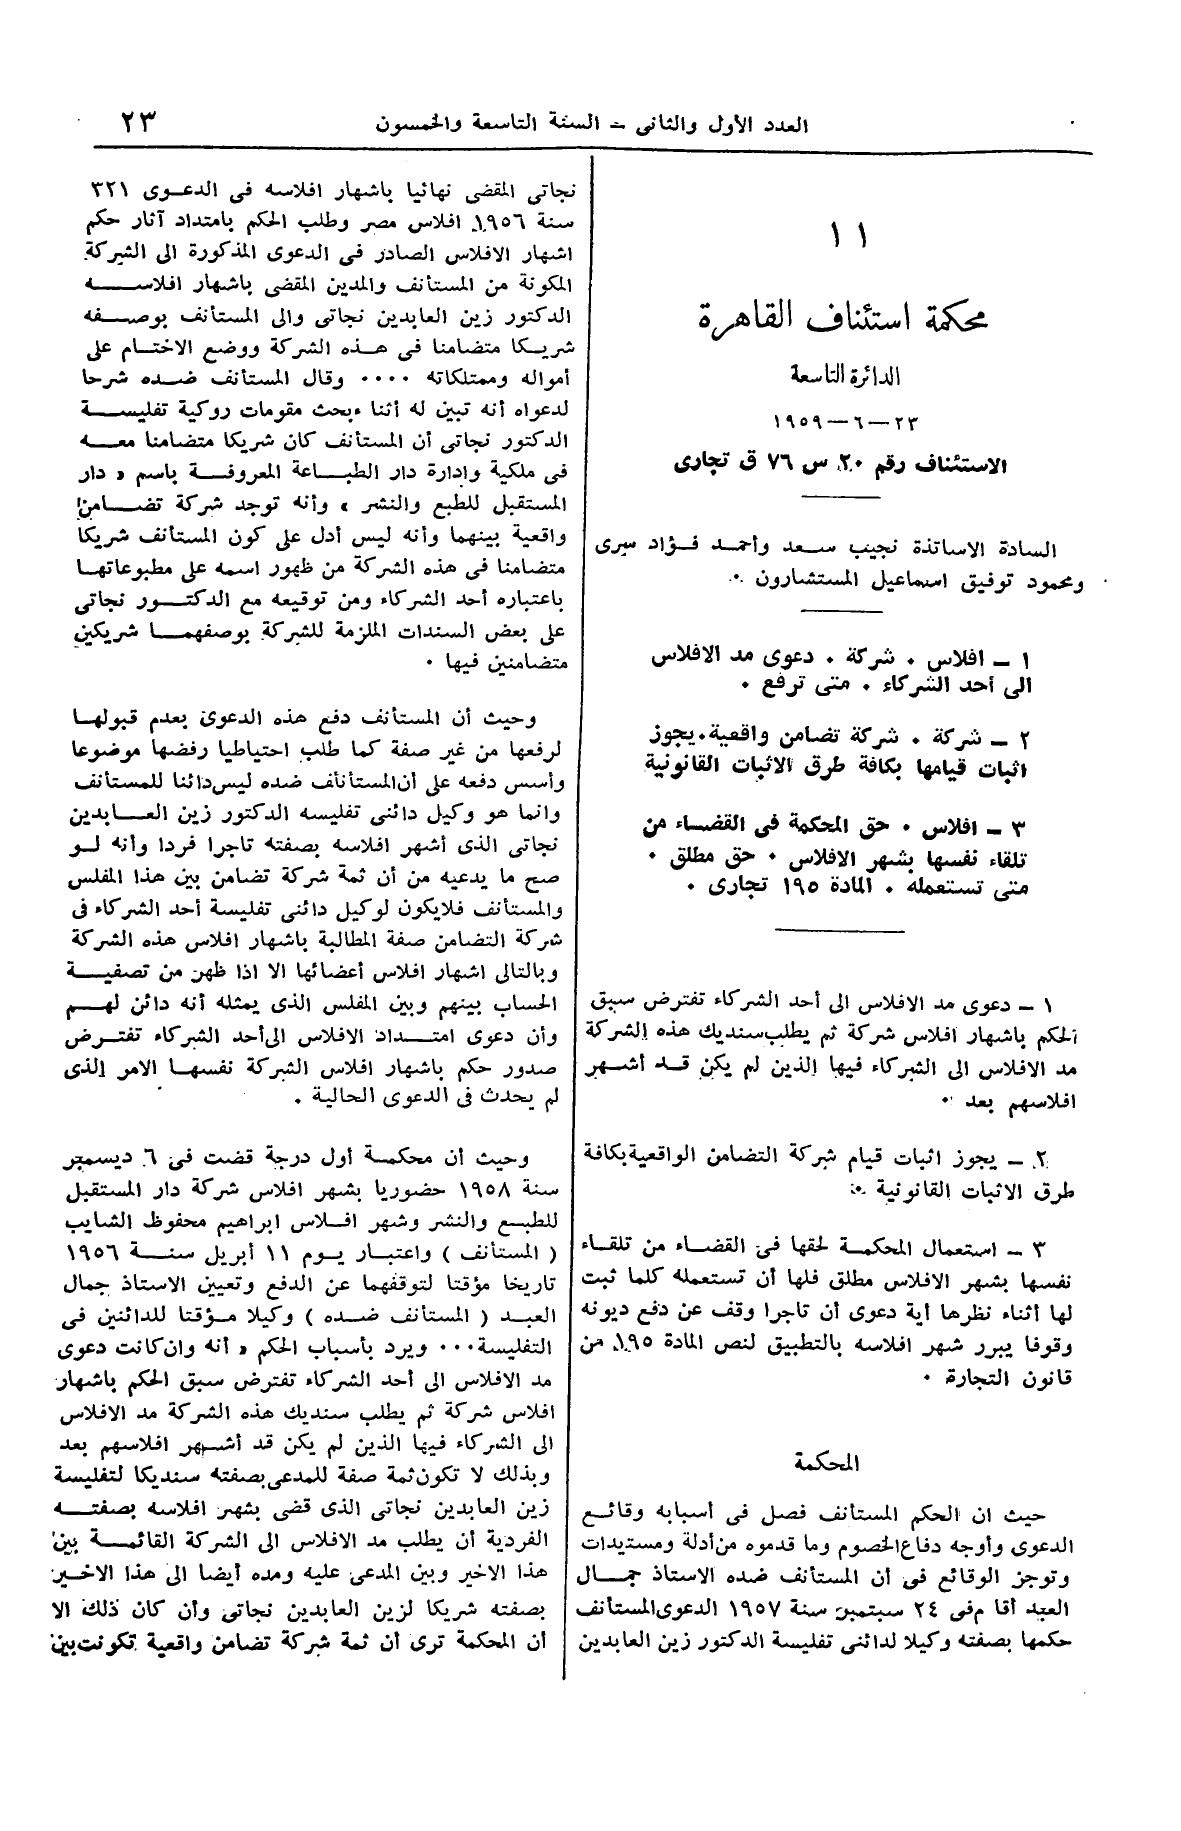 العدد الأول والثانى – السنة التاسعة والخمسون
٢٣
١١
محكمة استئناف القاهرة
الدائرة التاسعة
٢٣ – ٦ – ١٩٥٩
الاستئناف رقم ٢٠ س ٧٦ ق تجارى
السادة الاساتذة نجيب سعد وأحمد فؤاد سرى
ومحمود توفيق اسماعيل المستشارون .
١ – افلاس . شركة . دعوى مد الافلاس
الى أحد الشركاء . متى ترفع .
٢ – شركة . شركة تضامن واقعية . يجوز
اثبات قيامها بكافة طرق الاثبات القانونية
٣ – افلاس . حق المحكمة فى القضاء من
تلقاء نفسها بشهر الافلاس . حق مطلق .
متى تستعمله . المادة ١٩٥ تجارى .
١ – دعوى مد الافلاس الى أحد الشركاء تفترض سبق
الحكم باشهار افلاس شركة ثم يطلب سنديك هذه الشركة
مد الافلاس الى الشركاء فيها الذين لم يكن قد أشهر
افلاسهم بعد .
٢ – يجوز اثبات قيام شركة التضامن الواقعية بكافة
طرق الاثبات القانونية .
٣ – استعمال المحكمة لحقها فى القضاء من تلقاء
نفسها بشهر الافلاس مطلق فلها أن تستعمله كلما ثبت
لها أثناء نظرها أية دعوى أن تاجرا وقف عن دفع ديونه
وقوفا يبرر شهر افلاسه بالتطبيق لنص المادة ١٩٥ من
قانون التجارة .
المحكمة
حيث ان الحكم المستأنف فصل فى أسبابه وقائع
الدعوى وأوجه دفاع الخصوم وما قدموه من أدلة ومستيدات
وتوجز الوقائع فى أن المستأنف ضده الاستاذ جمال
العبد أقا م فى ٢٤ سبتمبر سنة ١٩٥٧ الدعوى المستأنف
حكمها بصفته وكيلا لدائنى تفليسة الدكتور زين العابدين
نجاتى المقضى نهائيا باشهار افلاسه فى الدعوى ٣٢١
سنة ١٩٥٦ افلاس مصر وطلب الحكم بامتداد آثار حكم
اشهار الافلاس الصادر فى الدعوى المذكورة الى الشركة
المكونة من المستأنف والمدين المقضى باشهار افلاسه
الدكتور زين العابدين نجاتى والى المستأنف بوصفه
شريكا متضامنا فى هذه الشركة ووضع الاختام على
أمواله وممتلكاته .... وقال المستأنف ضده شرحا
لدعواه أنه تبين له أثناء بحث مقومات روكية تفليسة
الدكتور نجاتى أن المستأنف كان شريكا متضامنا معه
فى ملكية وادارة دار الطباعة المعروفة باسم « دار
المستقبل للطبع والنشر » وأنه توجد شركة تضامن
واقعية بينهما وأنه ليس أدل على كون المستأنف شريكا
متضامنا فى هذه الشركة من ظهور اسمه على مطبوعاتها
باعتباره أحد الشركاء ومن توقيعه مع الدكتور نجاتى
على بعض السندات الملزمة للشركة بوصفهما شريكين
متضامنين فيها .
وحيث أن المستأنف دفع هذه الدعوى بعدم قبولها
لرفعها من غير صفة كما طلب احتياطيا رفضها موضوعا
وأسس دفعه على أن المستأنف ضده ليس دائنا للمستأنف
وانما هو وكيل دائنى تفليسه الدكتور زين العابدين
نجاتى الذى أشهر افلاسه بصفته تاجرا فردا وأنه لو
صح ما يدعيه من أن ثمة شركة تضامن بين هذا المفلس
والمستأنف فلا يكون لوكيل دائنى تفليسة أحد الشركاء فى
شركة التضامن صفة المطالبة باشهار افلاس هذه الشركة
وبالتالى اشهار افلاس أعضائها الا اذا ظهر من تصفية
الحساب بينهم وبين المفلس الذى يمثله أنه دائن لهم
وأن دعوى امتداد الافلاس الى أحد الشركاء تفترض
صدور حكم باشهار افلاس الشركة نفسها الامر الذى
لم يحدث فى الدعوى الحالية .
وحيث أن محكمة أول درجة قضت فى ٦ ديسمبر
سنة ١٩٥٨ حضوريا بشهر افلاس شركة دار المستقبل
للطبع والنشر وشهر افلاس ابراهيم محفوظ الشايب
( المستأنف ) واعتبار يوم ١١ أبريل سنة ١٩٥٦
تاريخا مؤقتا لتوقفهما عن الدفع وتعيين الاستاذ جمال
العبد ( المستأنف ضده ) وكيلا مؤقتا للدائنين فى
التفليسة ... ويرد بأسباب الحكم « أنه وان كانت دعوى
مد الافلاس الى أحد الشركاء تفترض سبق الحكم باشهار
افلاس شركة ثم يطلب سنديك هذه الشركة مد الافلاس
الى الشركاء فيها الذين لم يكن قد أشهر افلاسهم بعد
وبذلك لا تكون ثمة صفة للمدعى بصفته سنديكا لتفليسة
زين العابدين نجاتى الذى قضى بشهر افلاسه بصفته
الفردية أن يطلب مد الافلاس الى الشركة القائمة بين
هذا الاخير وبين المدعى عليه ومده أيضا الى هذا الاخير
بصفته شريكا لزين العابدين نجاتى وأن كان ذلك الا
أن المحكمة ترى أن ثمة شركة تضامن واقعية تكونت بين